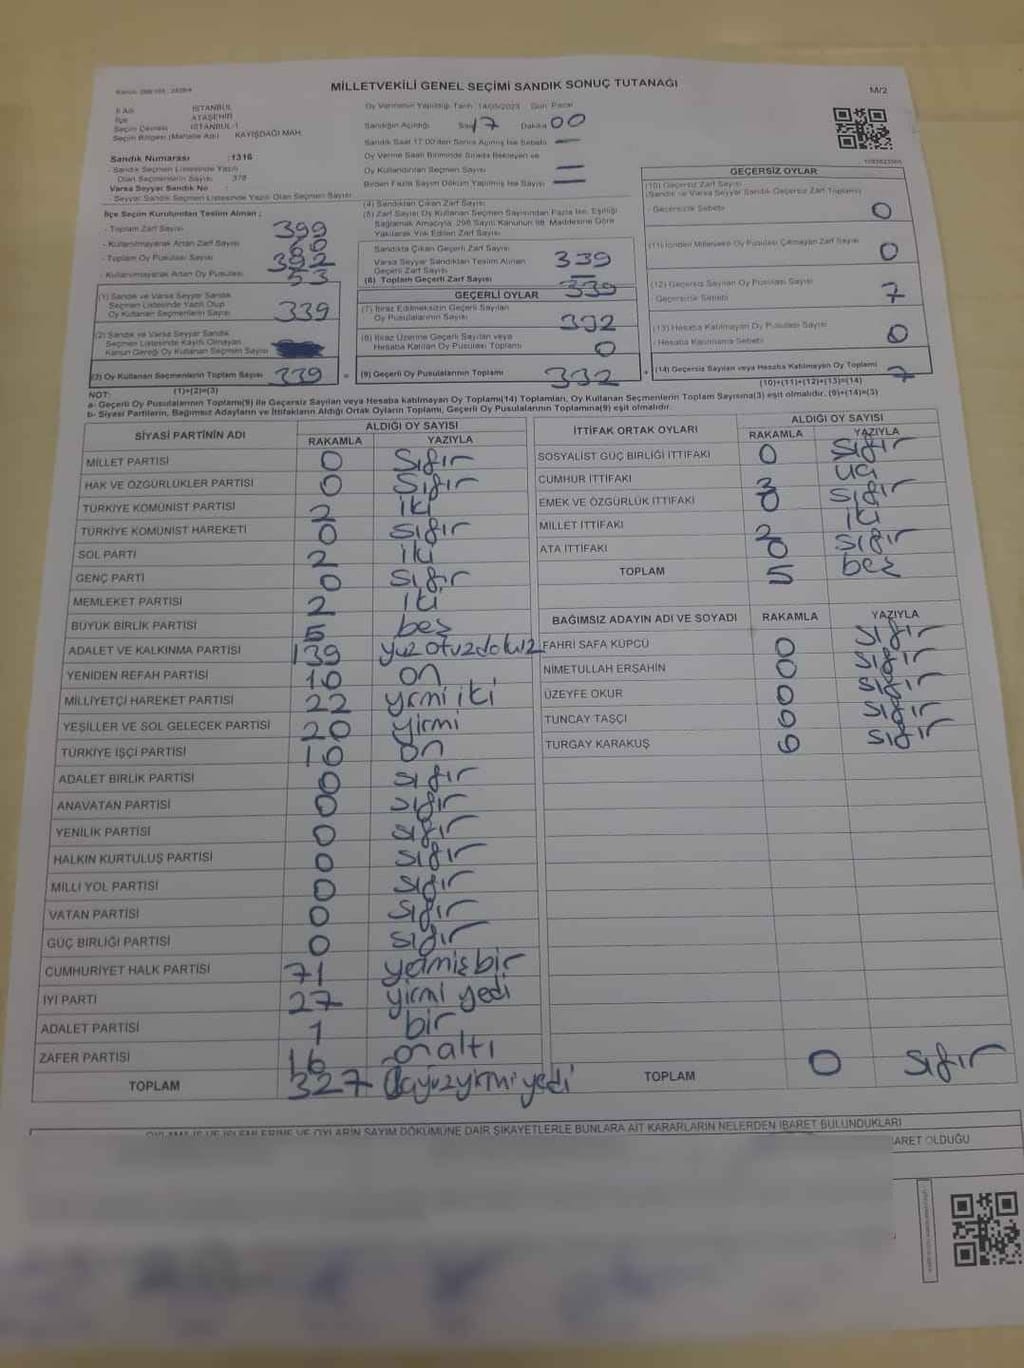 MİLLETVEKİLİ GENEL SEÇİMİ SANDIK SONUÇ TUTANAĞI
M/2
İSTANBUL
ATAŞEHİR
İSTANBUL-1
KAYIŞDAĞI MAH.
Oy Vermenin Yapıldığı Tarih 14/05/2023 Gün Pazar
Sandığın Açıldığı Saat 17 Dakika 00
Sandık Numarası : 1316
Sandık Seçmen Listesinde Yazılı
Olan Seçmenlerin Sayısı 378
Varsa Seyyar Sandık No
İlçe Seçim Kurulundan Teslim Alınan ;
- Toplam Zarf Sayısı 399
- Kullanılmayarak Artan Zarf Sayısı
- Toplam Oy Pusulası Sayısı 392
- Kullanılmayarak Artan Oy Pusulası 53
(1) Sandık ve Varsa Seyyar Sandık
Seçmen Listesinde Yazılı Olup
Oy Kullanan Seçmenlerin Sayısı 339
(2) Sandık ve Varsa Seyyar Sandık
Seçmen Listesinde Kayıtlı Olmayan
Kanun Gereği Oy Kullanan Seçmen Sayısı
(3) Oy Kullanan Seçmenlerin Toplam Sayısı 339
(1)+(2)=(3)
(4) Sandıktan Çıkan Zarf Sayısı
Sandıkta Çıkan Geçerli Zarf Sayısı
Varsa Seyyar Sandıktan Teslim Alınan
Geçerli Zarf Sayısı 339
(6) Toplam Geçerli Zarf Sayısı 339
GEÇERLİ OYLAR
(7) İtiraz Edilmeksizin Geçerli Sayılan
Oy Pusulalarının Sayısı 332
(8) İtiraz Üzerine Geçerli Sayılan veya
Hesaba Katılan Oy Pusulası Toplamı 0
= (9) Geçerli Oy Pusulalarının Toplamı 332
GEÇERSİZ OYLAR
(10) Geçersiz Zarf Sayısı
- Geçersizlik Sebebi 0
(11) İçinden Milletvekili Oy Pusulası Çıkmayan Zarf Sayısı 0
(12) Geçersiz Sayılan Oy Pusulası Sayısı
- Geçersizlik Sebebi 7
(13) Hesaba Katılmayan Oy Pusulası Sayısı
- Hesaba Katılmama Sebebi 0
+ (14) Geçersiz Sayılan veya Hesaba Katılmayan Oy Toplamı 7
(10)+(11)+(12)+(13)=(14)
NOT:
a- Geçerli Oy Pusulalarının Toplamı(9) ile Geçersiz Sayılan veya Hesaba katılmayan Oy Toplamı(14) Toplamları, Oy Kullanan Seçmenlerin Toplam Sayısına(3) eşit olmalıdır. (9)+(14)=(3)
b- Siyasi Partilerin, Bağımsız Adayların ve İttifakların Aldığı Ortak Oyların Toplamı, Geçerli Oy Pusulalarının Toplamına(9) eşit olmalıdır.
SİYASİ PARTİNİN ADI ALDIĞI OY SAYISI
RAKAMLA YAZIYLA
MİLLET PARTİSİ 0 sıfır
HAK VE ÖZGÜRLÜKLER PARTİSİ 0 sıfır
TÜRKİYE KOMÜNİST PARTİSİ 2 iki
TÜRKİYE KOMÜNİST HAREKETİ 0 sıfır
SOL PARTİ 2 iki
GENÇ PARTİ 0 sıfır
MEMLEKET PARTİSİ 2 iki
BÜYÜK BİRLİK PARTİSİ 5 beş
ADALET VE KALKINMA PARTİSİ 139 yüz otuzdokuz
YENİDEN REFAH PARTİSİ 10 on
MİLLİYETÇİ HAREKET PARTİSİ 22 yirmi iki
YEŞİLLER VE SOL GELECEK PARTİSİ 20 yirmi
TÜRKİYE İŞÇİ PARTİSİ 10 on
ADALET BİRLİK PARTİSİ 0 sıfır
ANAVATAN PARTİSİ 0 sıfır
YENİLİK PARTİSİ 0 sıfır
HALKIN KURTULUŞ PARTİSİ 0 sıfır
MİLLİ YOL PARTİSİ 0 sıfır
VATAN PARTİSİ 0 sıfır
GÜÇ BİRLİĞİ PARTİSİ 0 sıfır
CUMHURİYET HALK PARTİSİ 71 yetmiş bir
İYİ PARTİ 27 yirmi yedi
ADALET PARTİSİ 1 bir
ZAFER PARTİSİ 16 on altı
TOPLAM 327 üçyüzyirmiyedi
İTTİFAK ORTAK OYLARI ALDIĞI OY SAYISI
RAKAMLA YAZIYLA
SOSYALİST GÜÇ BİRLİĞİ İTTİFAKI 0 sıfır
CUMHUR İTTİFAKI 3 üç
EMEK VE ÖZGÜRLÜK İTTİFAKI 0 sıfır
MİLLET İTTİFAKI 2 iki
ATA İTTİFAKI 0 sıfır
TOPLAM 5 beş
BAĞIMSIZ ADAYIN ADI VE SOYADI RAKAMLA YAZIYLA
FAHRİ SAFA KÜPCÜ 0 sıfır
NİMETULLAH ERŞAHİN 0 sıfır
ÜZEYFE OKUR 0 sıfır
TUNCAY TAŞÇI 0 sıfır
TURGAY KARAKUŞ 0 sıfır
TOPLAM 0 sıfır
OYLARIN SAYIM DÖKÜMÜNE DAİR ŞİKAYETLERLE BUNLARA AİT KARARLARIN NELERDEN İBARET BULUNDUKLARI